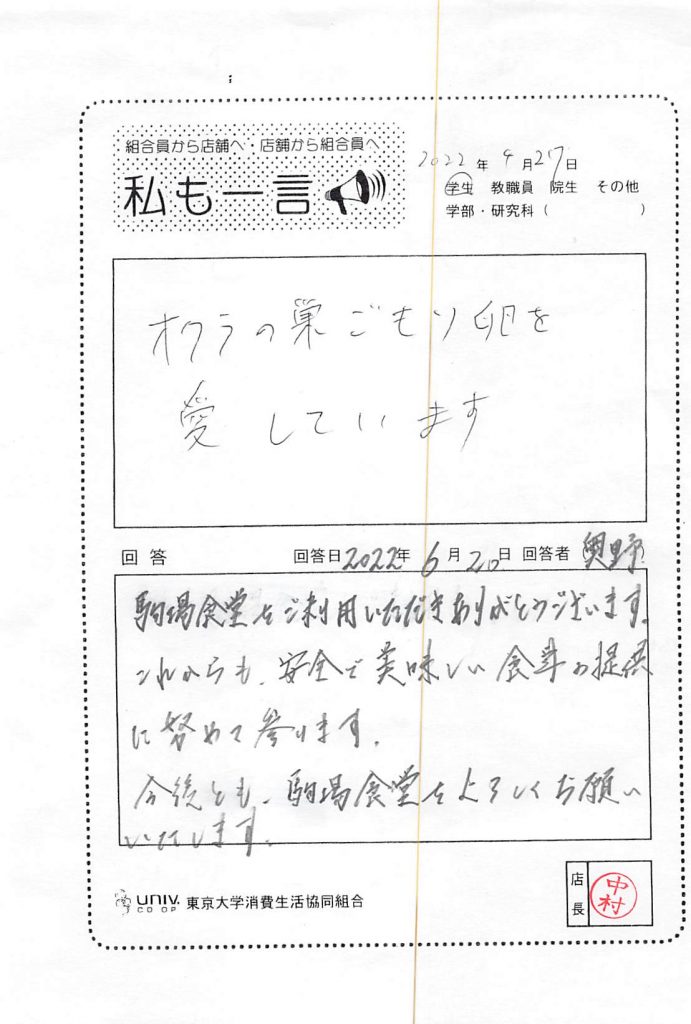 組合員から店舗へ・店舗から組合員へ
私も一言
2022年4月27日
学生 教職員 院生 その他
学部・研究科( )
オクラの巣ごもり卵を
愛しています
回答 回答日2022年6月20日 回答者(奥野)
駒場食堂をご利用いただきありがとうございます。
これからも、安全で美味しい食事の提供
に努めて参ります。
今後とも、駒場食堂をよろしくお願い
いたします。
UNIV. CO-OP 東京大学消費生活協同組合
店長 中村